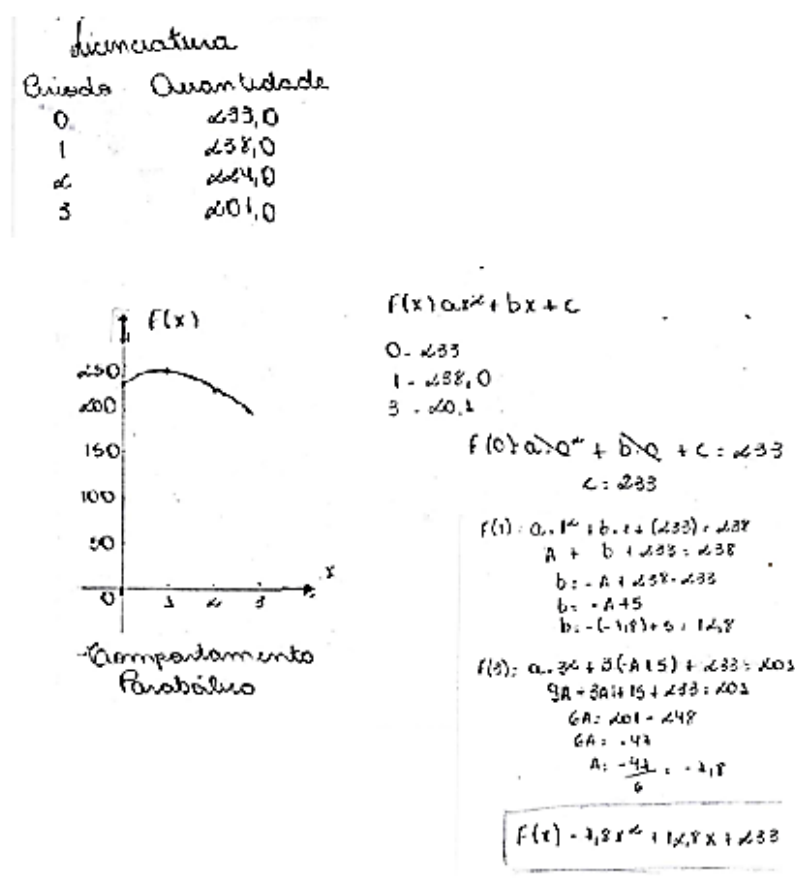 Licenciatura
Período Quantidade
0 233,0
1 238,0
2 224,0
3 201,0
F(x)
250
200
150
100
50
0 1 2 3 x
Comportamento
Parabólico
F(x) ax² + bx + c
0 - 233
1 - 238,0
3 - 20,1
F(0) a.0² + b.0 + c = 233
c = 233
F(1): a.1² + b.1 + (233) = 238
A + b + 233 = 238
b = -A + 238 - 233
b = -A+5
b = -(-7,8)+5 = 12,8
F(3): a.3² + 3(-A+5) + 233 = 201
9A - 3A + 15 + 233 = 201
6A = 201 - 248
6A = -47
A = -47/6 = -7,8
F(x) - 7,8x² + 12,8x + 233